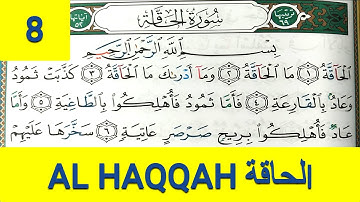 8
ترتيبها ٦٩
سُورَةُ الحَاقَّةِ
آياتها ٥٢
بِسْمِ اللَّهِ الرَّحْمَٰنِ الرَّحِيمِ
الْحَاقَّةُ ١ مَا الْحَاقَّةُ ٢ وَمَا أَدْرَىٰكَ مَا الْحَاقَّةُ ٣ كَذَّبَتْ ثَمُودُ
وَعَادٌ بِالْقَارِعَةِ ٤ فَأَمَّا ثَمُودُ فَأُهْلِكُوا بِالطَّاغِيَةِ ٥ وَأَمَّا
عَادٌ فَأُهْلِكُوا بِرِيحٍ صَرْصَرٍ عَاتِيَةٍ ٦ سَخَّرَهَا عَلَيْهِمْ
AL HAQQAH الحاقة